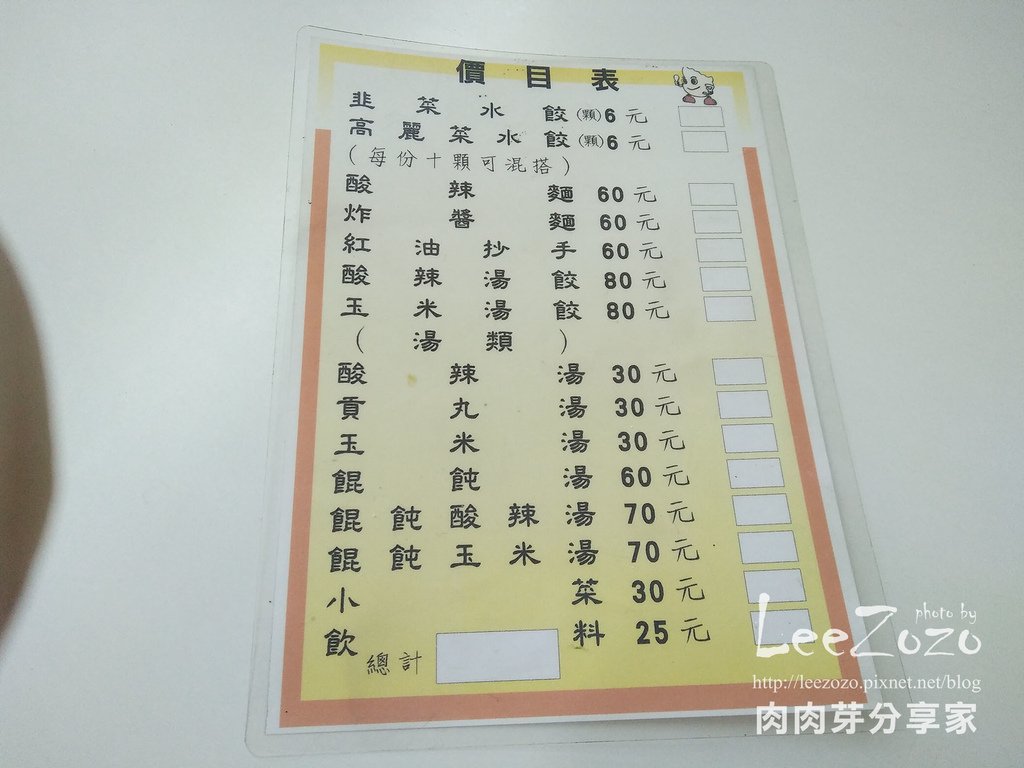 價目表
韭菜水餃(顆)6元
高麗菜水餃(顆)6元
(每份十顆可混搭)
酸辣麵60元
炸醬麵60元
紅油抄手60元
酸辣湯餃80元
玉米湯餃80元
(湯類)
酸辣湯30元
貢丸湯30元
玉米湯30元
餛飩湯60元
餛飩酸辣湯70元
餛飩玉米湯70元
小菜30元
飲料25元
總計
photo by
LeeZozo
http://leezozo.pixnet.net/blog
肉肉芽分享家